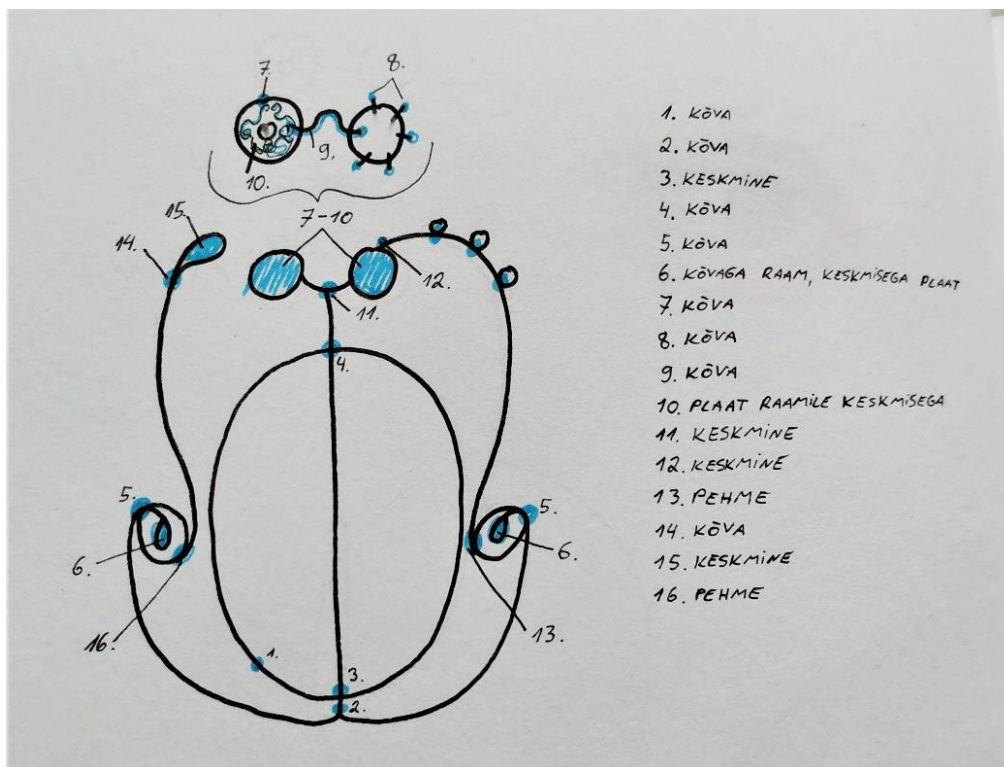 7.
8.
9.
10.
7-10
15.
14.
12.
11.
4.
5.
5.
6.
6.
16.
13.
1.
3.
2.
1. KÕVA
2. KÕVA
3. KESKMINE
4. KÕVA
5. KÕVA
6. KÕVAGA RAAM, KESKMISEGA PLAAT
7. KÕVA
8. KÕVA
9. KÕVA
10. PLAAT RAAMILE KESKMISEGA
11. KESKMINE
12. KESKMINE
13. PEHME
14. KÕVA
15. KESKMINE
16. PEHME